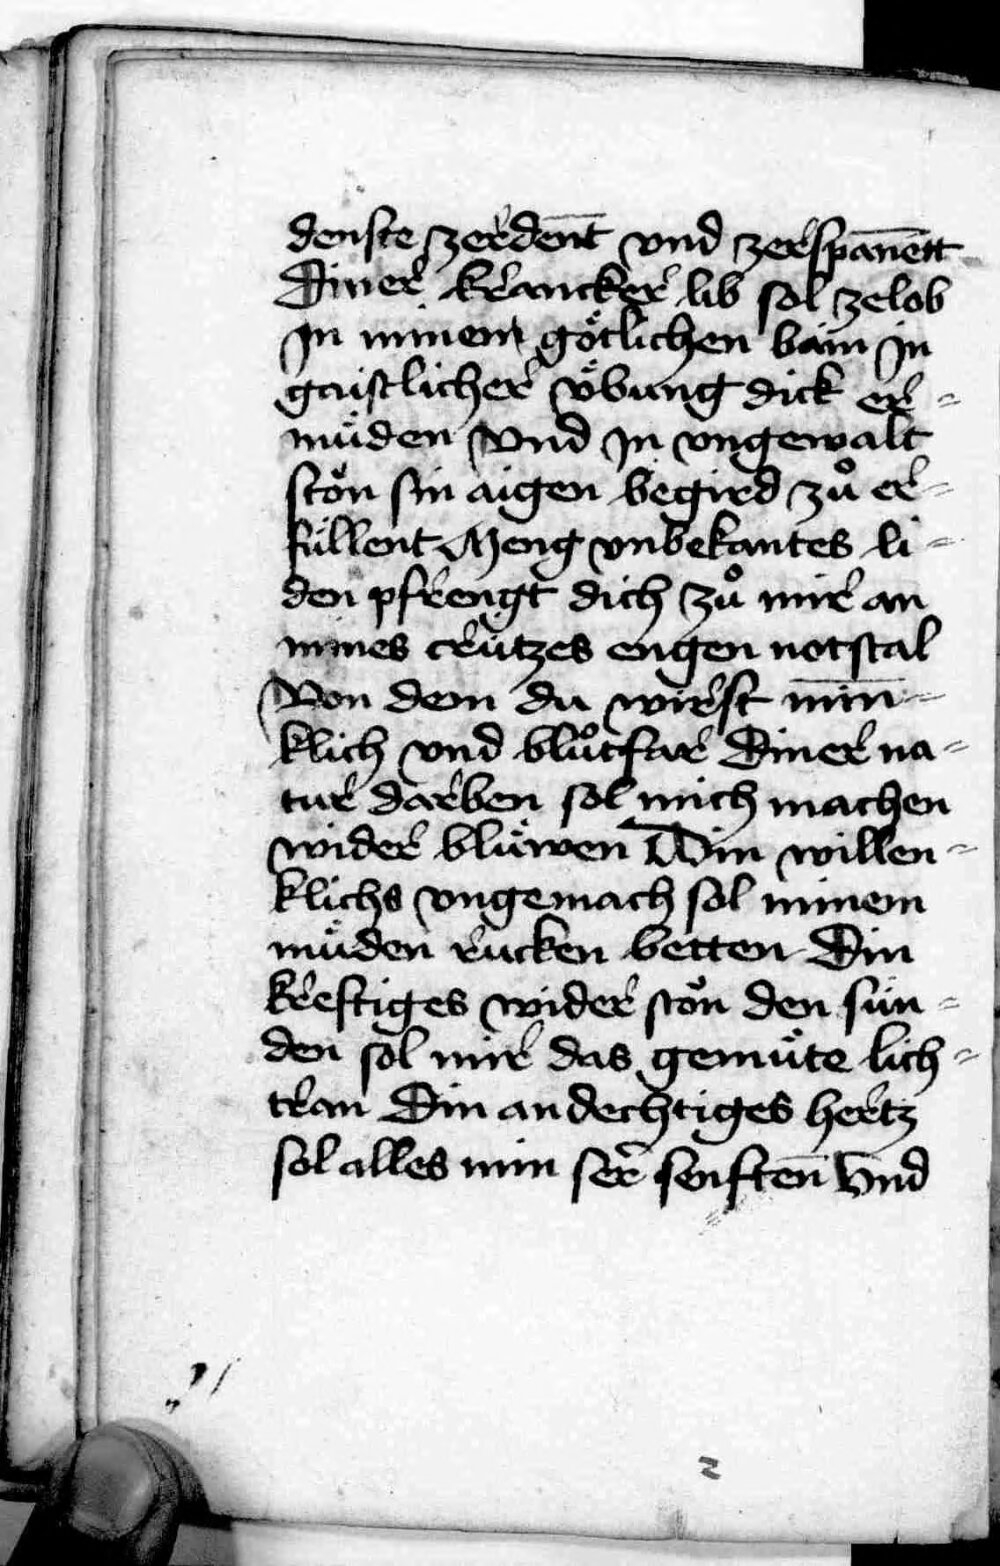 denste zerdent̄ vnd zerspan̄ett
Diner krancker lib sol ze lob
Jn minem götlichen bain Jn
gaistlicher v̈bung dick er-
müden Vnd Jn vngewalt
stön sin aigen begird zů er-
füllent Meng vnbekantes li-
den pfrengt dich zů mir an
mines crützes engen notstal
Von dem du wirst min̄-
klich vnd blůtfar Diner na-
tur darben sol mich machen
wider blüwen Din willen-
klichs vngemach sol minem
müden rucken betten Din
kreftiges wider stön den sün-
den sol mir das gemüte lich-
tran Din andechtiges hertz
sol alles min ser senften̄ Vnd
2